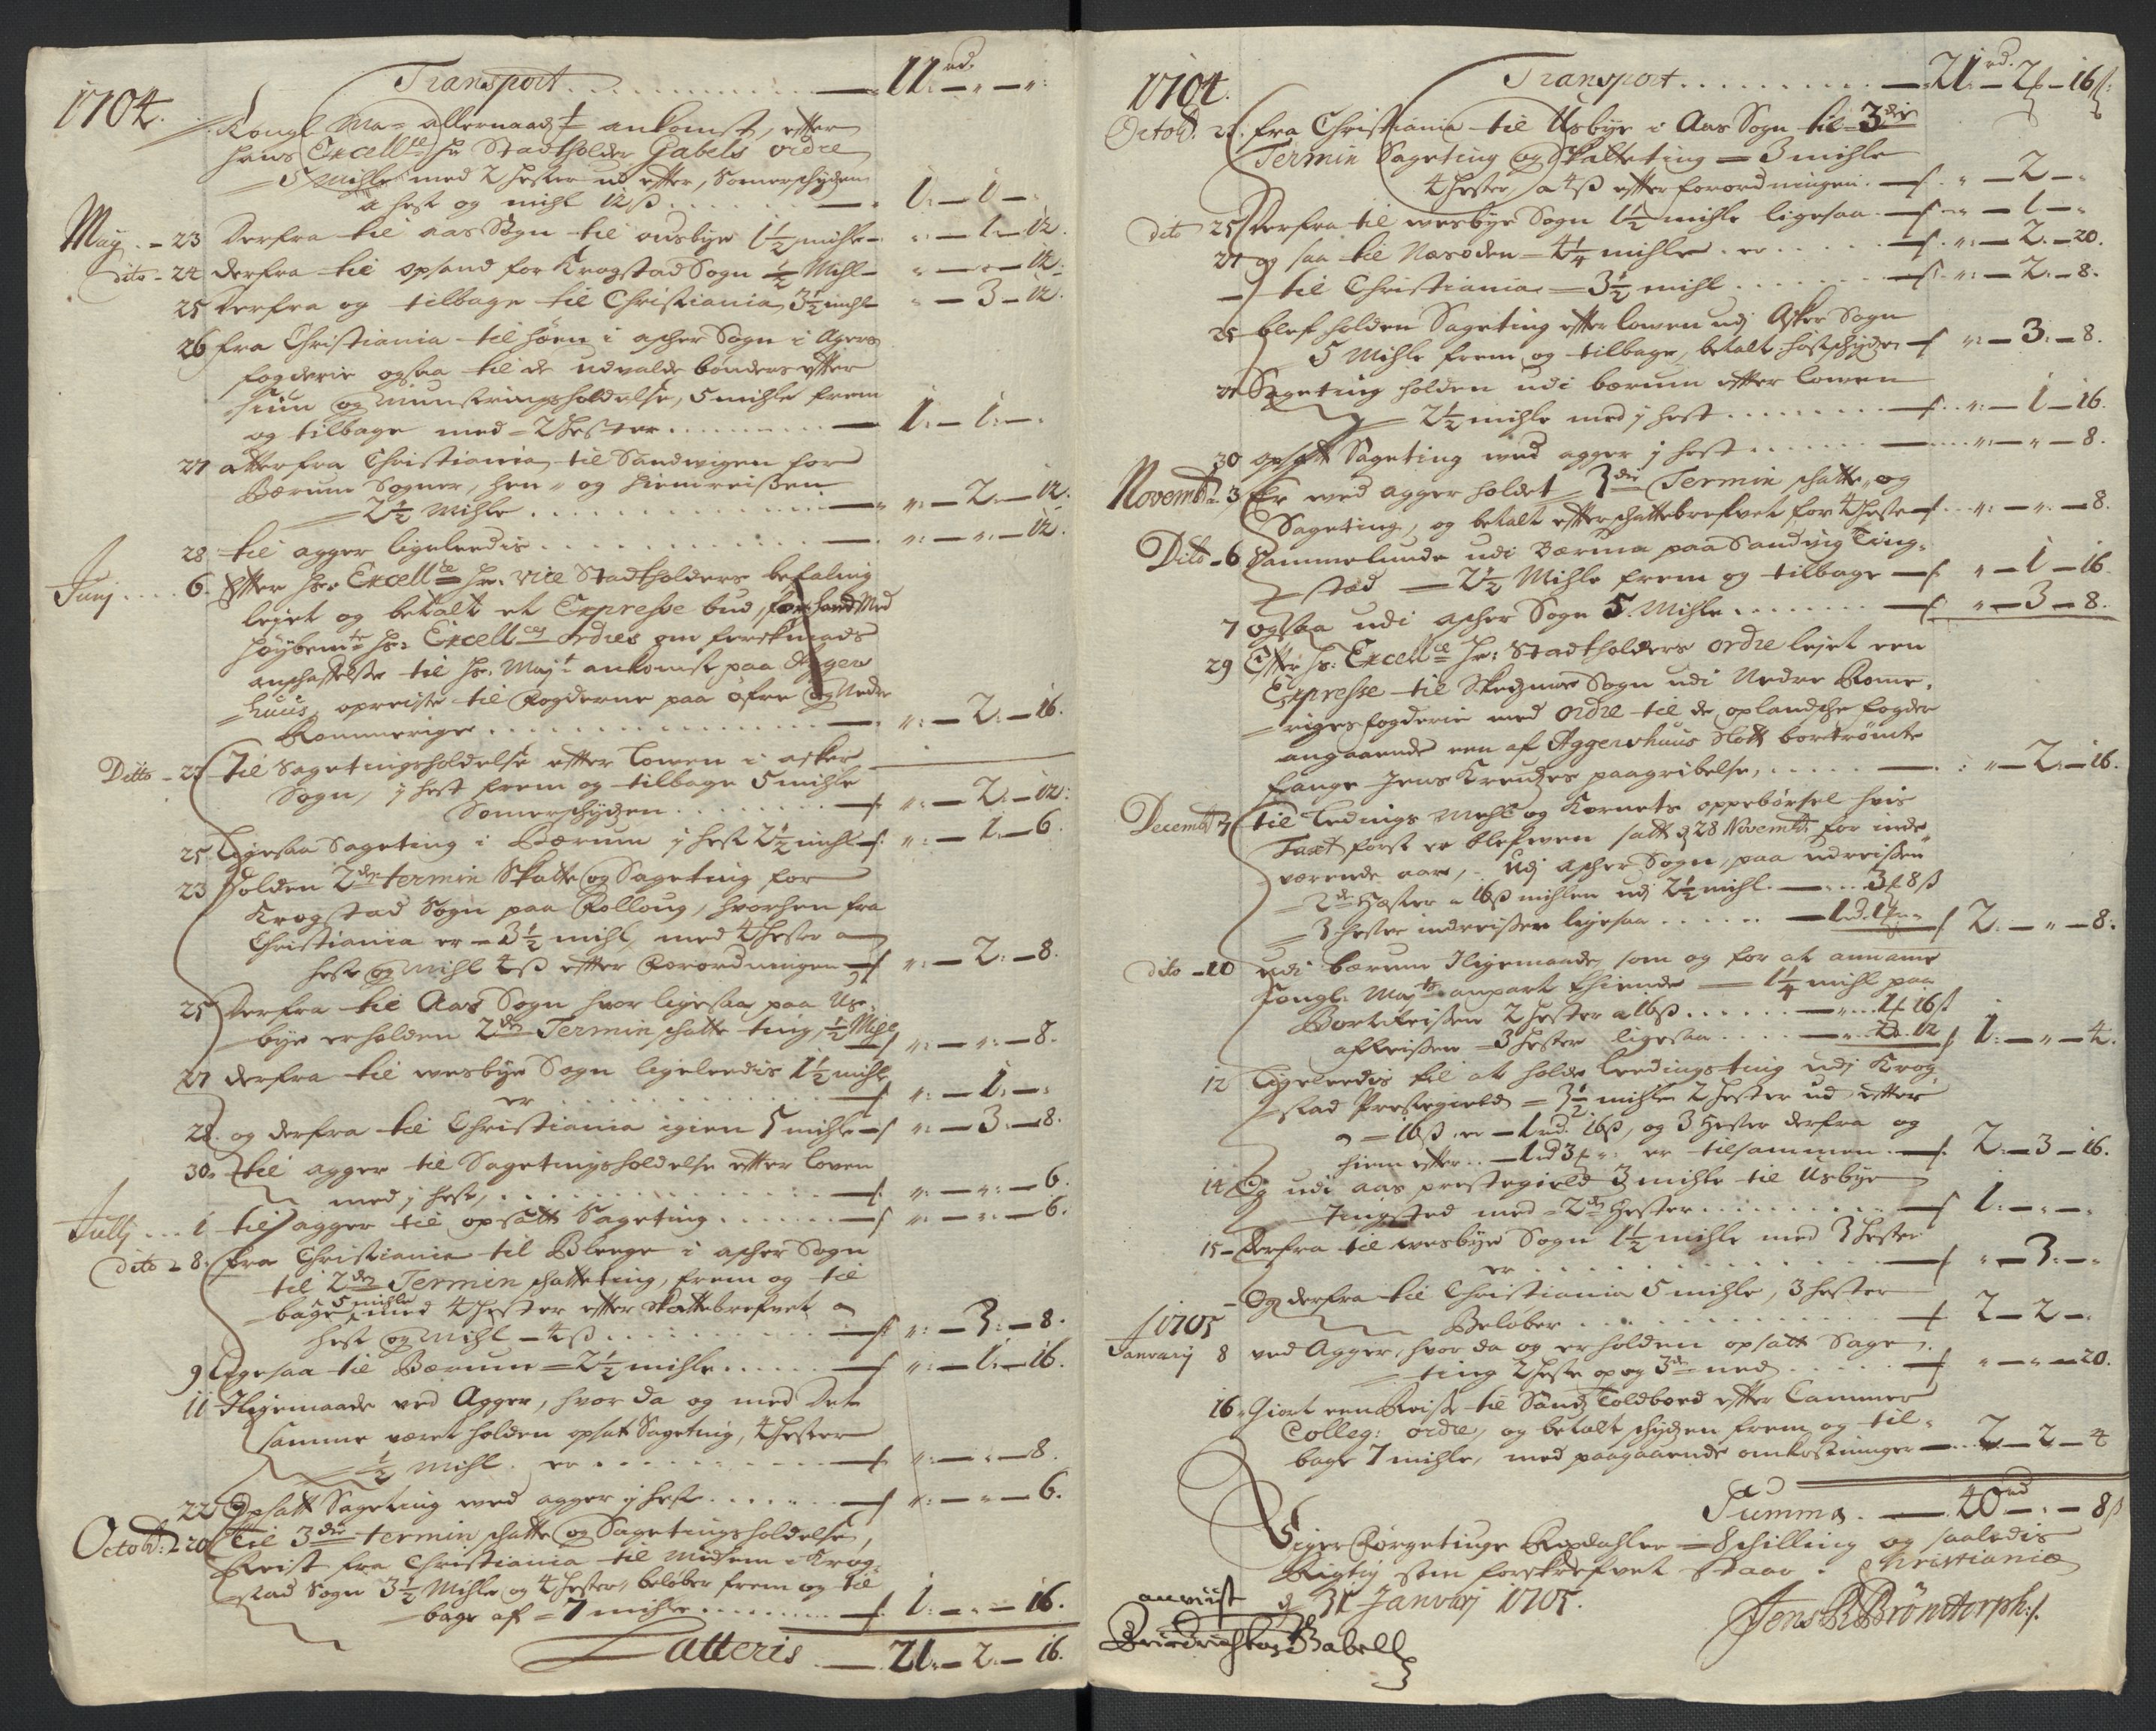 1704. Transport . . . . . . . . . — 11 rd. — " — ":
Kongl Ma: allernaadst ankomst, efter
hans Excellce hr Stadtholder Gabels ordre
5 Mihle med 2 hester ud efter, Somerschydsen
a hest og mihl 12 ß . . . . . — 1: — 1 — :
May - 23 Derfra til aas Sogn til ousbye 1½ mihle — " — 1 — 12.
dito - 24 derfra til opsand for Krogstad Sogn ½ Mihl — " — " — 12:
25 derfra og tilbage til Christiania 3½ mihl — " — 3 — 12.
26 fra Christiania til höen i asher Sogn i Agers
fogderie ogsaa til de udvalde bönders efter
siun og Munstringsholdelse, 5 mihle frem
og tilbage med - 2 hester . . . . . . . — 1: — 1: — :
27 atter fra Christiania til Sandvigen for
Bærums Sogner, hen- og hiemreissen
2½ Mihle . . . . . . . . . . . — ": — 2. — 12.
28 til agger ligeleedis . . . . . . . . . . — ": — ": — 12.
Junj . . . . 6. Efter hs: Excellce hr: Vice Stadtholders befaling
lejet og betalt et Expresse bud, for hand Med
höybemte hs: Excellces ordres om forskmads
anschaffelse til hs: Mayt ankomst paa Agger
huus, opreiste til Fogderne paa öfre og Nedre
Rommerige . . . . . . . . . . . . — ": — 2. — 16.
Ditto - 22 Til Sagetingsholdelse efter lowen i asker
Sogn, j hest frem og tilbage 5 mihle
Somerschydsen . . . . . . . . — ": — 2. — 12:
25 Ligesaa Sageting i Bærum j hest 2½ mihl — ": — 1. — 6.
23 Holden 2den termin Skatte og Sageting for
Krogstad Sogn paa Rolloug, hvorhen fra
Christiania er - 3½ mihl, med 4 hester a
hest og Mihl 4 ß efter Forordningen — ": — 2: — 8.
25 Derfra til Aas Sogn hvor ligesaa paa Us-
bye er holden 2den Termin schatte ting, ½ Mihl — ": — ": — 8.
27 derfra til wesbye Sogn ligeleedis 1½ mihl
er . . . . . . . . . . . . . — ": — 1: — :
28. og derfra til Christiania igien 5 mihle — ": — 3: — 8:
30. til agger til Sagetingsholdelse efter loven
med j hest, . . . . . . . . . . . . . — ": — ": — 6.
Julij . . . 1 til agger til opsatt Sageting . . . . . . — ": — ": — 6.
dito - 8. fra Christiania til Blenge i asher Sogn
til 2den Termin schatteting, frem og til
bage 5 mihle med 4 hester efter skattebrefvet a
hest og Mihl - 4 ß . . . . . . . . . — ": — 3: — 8.
9 Ligesaa til Bærum - 2½ mihle . . . . . — ": — 1: — 16.
11 Iligemaade ved Agger, hvor da og med det
samme været holden opsat Sageting, 4 hester
½ Mihl. er . . . . . . . . . — ": — " — 8.
22 Opsatt Sageting wed agger j hest . . . . . — ": — " — 6.
Octobr: - 20 Til 3die termin schatte og Sagetingsholdelse,
Reist fra Christiania til Midsem i Krog-
stad Sogn 3½ Mihle og 4 hester, belöber frem og til
bage af - 7 mihle . . . . . . . . — 1: — " — 16.
Latteris — 21: — 2. — 16.
1704. Transport . . . . . . . . . — 21 rd. — 2 — 16 ß:
Octobr. 22. fra Christiania til Usbye i Aas Sogn til 3die
Termin Sageting og Skatteting - 3 mihle
4 hester, a 4 ß efter forordningen. — " — 2 — "
dito 25 Derfra til wesbye Sogn 1½ mihle ligesaa — " — 1 — "
27 og saa til Næsöden - 4¼ mihle . er . . . . . — ": — 2. — 20.
— til Christiania - 3½ mihl . . . . . . . — ": — 2. — 8.
25 blef holden Sageting efter lowen udj Asker Sogn
5 Mihle frem og tilbage, betalt höstschydsen — ": — 3: — 8.
27 Sageting holden udi bærum efter lowen
2½ mihle med j hest . . . . . . . . — ": — 1 — 16.
30 opsatt Sageting wed agger j hest . . . . . . — ": — " — 8.
Novembr. 3 Er wed agger holdet 3die Termin schatte- og
Sageting, og betalt efter schattebrefvet for 4 heste — ": — ": — 8.
Ditto - 6 Sammelunde udi Bærum paa Sandvig Ting-
stæd — 2½ Mihle frem og tilbage — " — 1 — 16
7 ogsaa udi asher Sogn 5 Mihle . . . . . . . — " — 3 — 8.
29 Efter hs: Excellce hr: Stadtholders ordre lejet een
Expresse til Skedsmoe Sogn udi Nedre Rome-
riges fogderie med ordre til de oplandsche fogder
angaaende een af Aggershuus Slott bortrömte
fange Jens Kreutzes paagribelse, . . . . . — : " — 2. — 16.
Decembr 7 til Ledings Mehl og Kornets oppebörsel hvis
Taxt först er blefwen satt d 28 Novembr: for inde-
værende aar, udj asher Sogn, paa udreisen
2de Hæster a 16 ß mihlen udj 2½ mihl. — . . 3 8 ß
3 hester indreisen ligesaa . . . . . . — 1 rd. 1 " 2. — " — 8:
dito - 10 udi bærum Iligemaade, som og for at anname
Kongl: Maytts anpart thiende — 1¼ mihl paa
Bortreisen 2 hester a 16 ß . . . . . . — " . . . 1 16 ß
afreisen - 3 hester ligesaa . . . . — " 2. 12 1: — " — 4.
12 Ligeleedis til at holde leedingsting udj Krog-
stad Prestegield = 3½ mihle 2 hester ud efter
a = 16 ß er — 1 rd. 16 ß, og 3 Hester derfra og
hiem efter . . — 1 rd 3 " er tilsammen . — 2. — 3 — 16.
14 Og udi aas prestegield 3 mihle til Usbye
Tingsted med - 2de Hester . . . . . . . . . — 1. — " — "
15 - Derfra til wesbye Sogn 1½ mihle med 3 hester
er . . . . . . . . . . . . . . — " — 3: — "
— Og derfra til Christiania 5 mihle, 3 hester
Belöber . . . . . . . . . . . . — 2 — 2 — .
1705
January 8 ved Agger, hvor da og er holden opsatt Sage-
ting 2 heste op og 3de ned . . . . . . — " — " — 20.
16. Giort een Reise til Sand Toldboed efter Cammer
Colleg: ordre, og betalt schydsen frem og til-
bage 7 mihle, med paagaaende omkostninger — 2 — 2 — 4
Summa . — 40 rd — " — 8 ß
Siger Förgetiuge Rixdahler — 8 schilling og saaledis
Rigtig som forskrefvet Staar. Christiania
anviist d 31 January 1705.
Friedrich Gabell
Jens R Bröndorph:/.